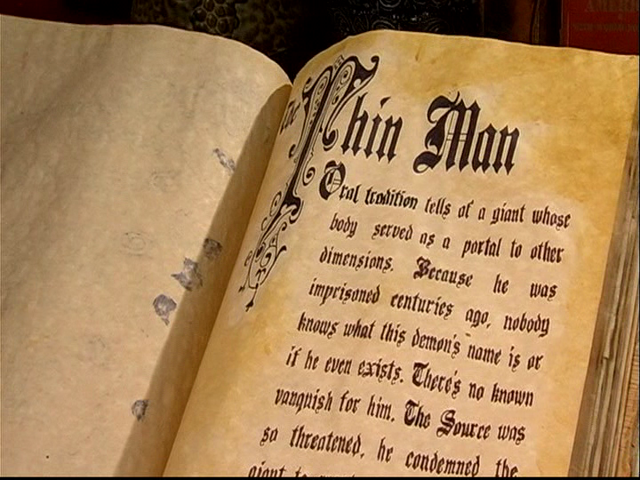 The Thin Man
Oral tradition tells of a giant whose
body served as a portal to other
dimensions. Because he was
imprisoned centuries ago, nobody
knows what this demon's name is or
if he even exists. There's no known
vanquish for him. The Source was
so threatened, he condemned the
giant to
AMERI